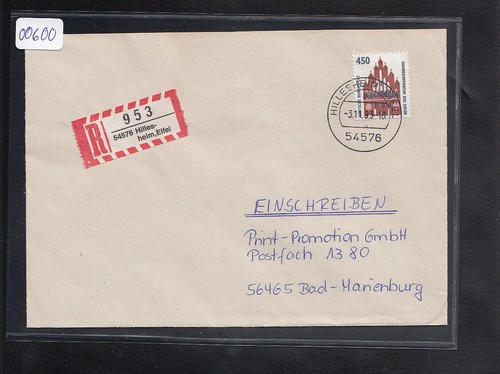 00600
450
R
953
54576 Hilles-
heim,Eifel
HILLESHEIM
-3.11.93-18
54576
EINSCHREIBEN
Print-Promotion GmbH
Postfach 13 80
56465 Bad-Marienburg